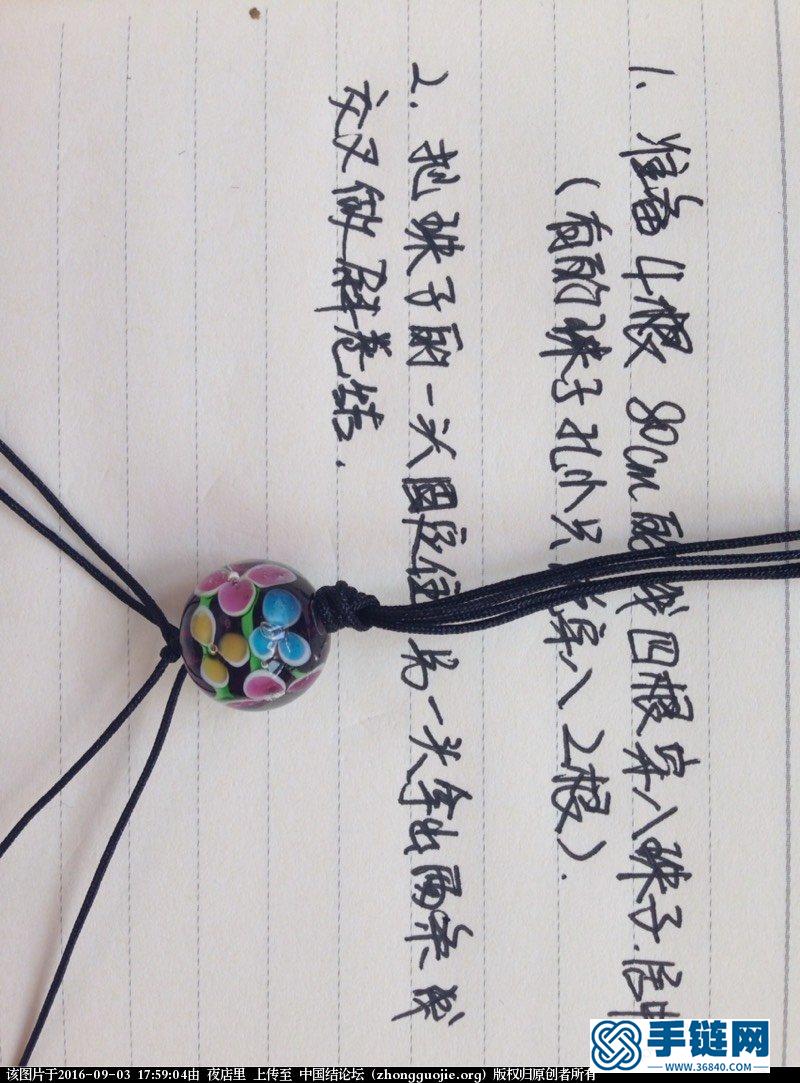 1. 准备4根 80cm的线四根穿入珠子.居中
(有的珠子孔小只 穿入2根).
2. 把珠子的一头固定住 另一头拿出两条线
交叉做 斜卷结.
手链网
www.36840.com
该图片于2016-09-03 17:59:04由 夜店里 上传至 中国结论坛 (zhongguojie.org) 版权归原创者所有